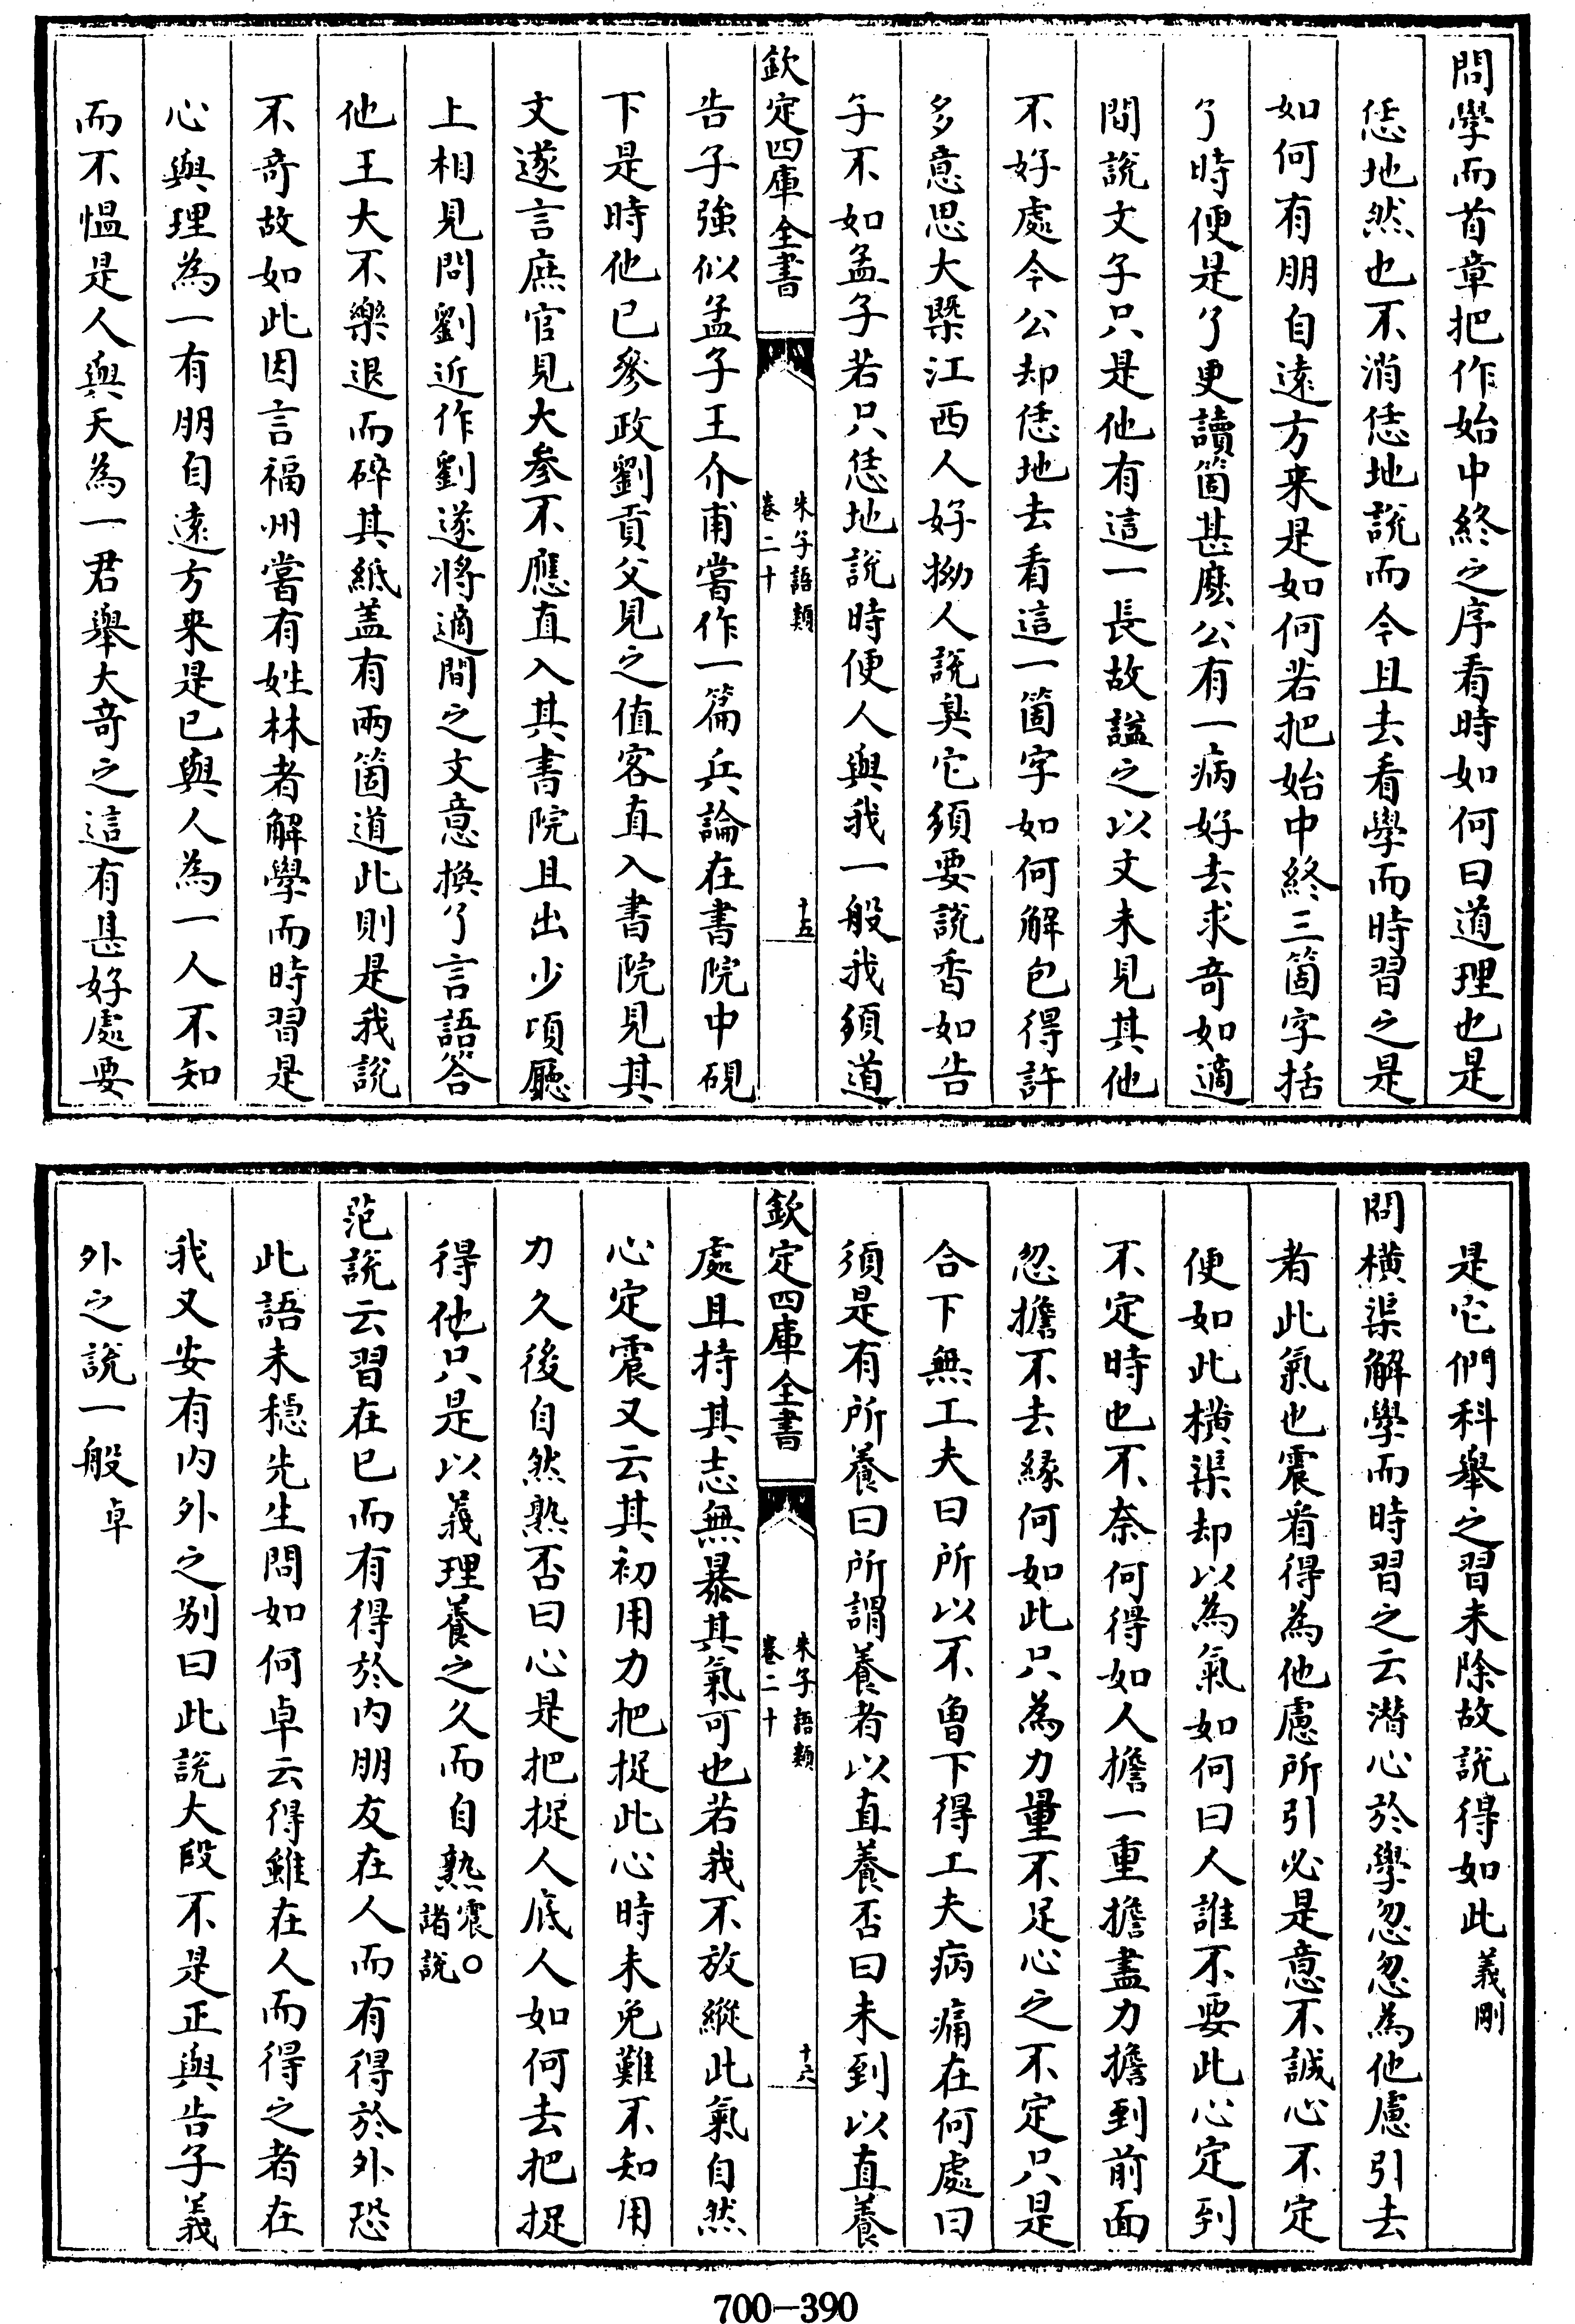 問學而首章把作始中終之序看時如何曰道理也是
恁地然也不消恁地說而今且去看學而時習之是
如何有朋自遠方来是如何若把始中終三箇字括
了時便是了更讀箇甚麽公有一病好去求竒如適
間說文子只是他有這一長故諡之以文未見其他
不好處今公却恁地去看這一箇字如何解包得許
多意思大槩江西人好拗人說臭它須要說香如告
子不如孟子若只恁地說時便人與我一般我須道
欽定四庫全書
朱子語類
卷二十
十五
告子強似孟子王介甫嘗作一篇兵論在書院中硯
下是時他已參政劉貢父見之值客直入書院見其
文遂言庶官見大参不應直入其書院且出少頃廳
上相見問劉近作劉遂將適間之文意換了言語答
他王大不樂退而碎其紙盖有兩箇道此則是我說
不竒故如此因言福州嘗有姓林者解學而時習是
心與理為一有朋自遠方来是已與人為一人不知
而不愠是人與天為一君舉大竒之這有甚好處要
是它們科舉之習未除故說得如此義剛
問横渠解學而時習之云潜心於學忽忽為他慮引去
者此氣也震看得為他慮所引必是意不誠心不定
便如此横渠却以為氣如何曰人誰不要此心定到
不定時也不奈何得如人擔一重擔盡力擔到前面
忽擔不去緣何如此只為力量不足心之不定只是
合下無工夫曰所以不曽下得工夫病痛在何處曰
須是有所養曰所謂養者以直養否曰未到以直養
欽定四庫全書
朱子語類
卷二十
十六
處且持其志無暴其氣可也若我不放縱此氣自然
心定震又云其初用力把捉此心時未免難不知用
力久後自然熟否曰心是把捉人底人如何去把捉
得他只是以義理養之久而自熟震○諸說
范說云習在已而有得於内朋友在人而有得於外恐
此語未穏先生問如何卓云得雖在人而得之者在
我又安有内外之别曰此說大段不是正與告子義
外之說一般卓
700-390